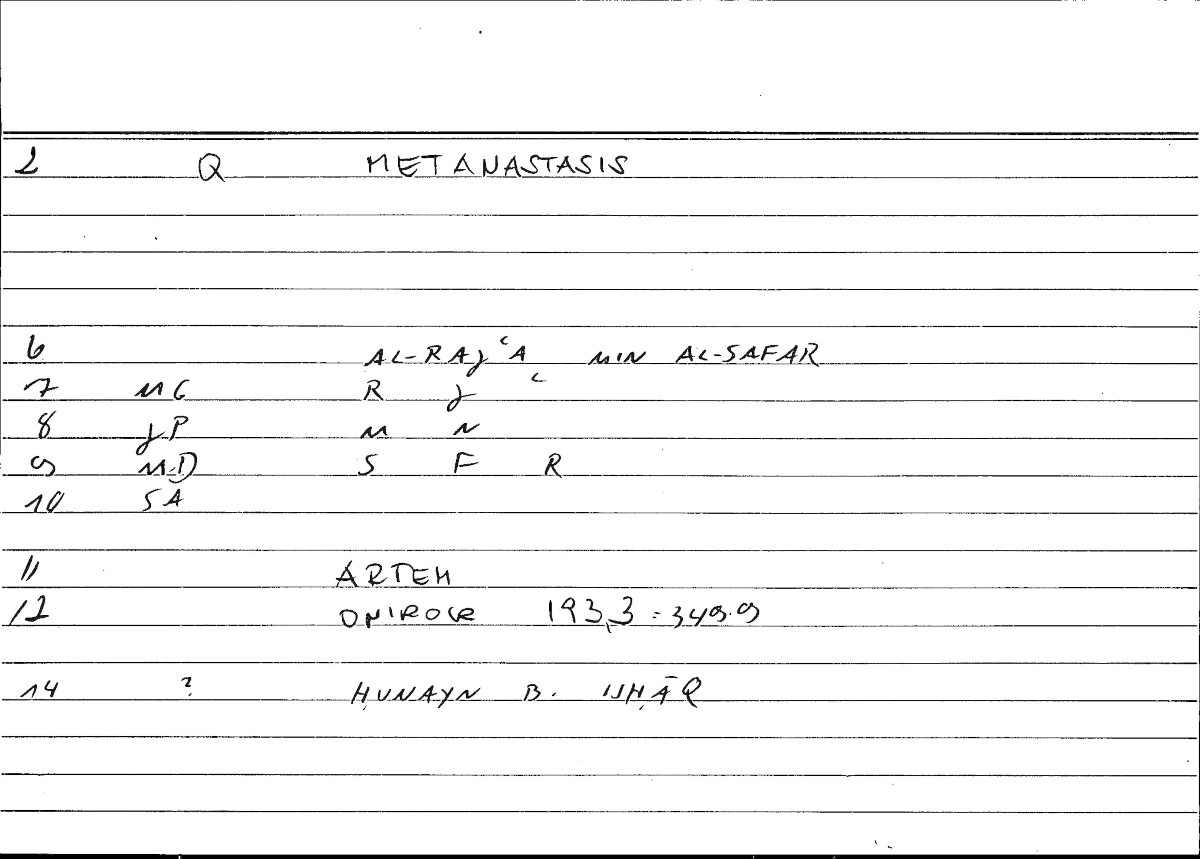 2 Q METANASTASIS
6 AL-RAJʿA MIN AL-SAFAR
7 MG R J ʿ
8 JP M N
9 MD S F R
10 SA
11 ARTEM
12 ONIROCR 193,3 = 349.9
14 ? ḤUNAYN B. ISḤĀQ